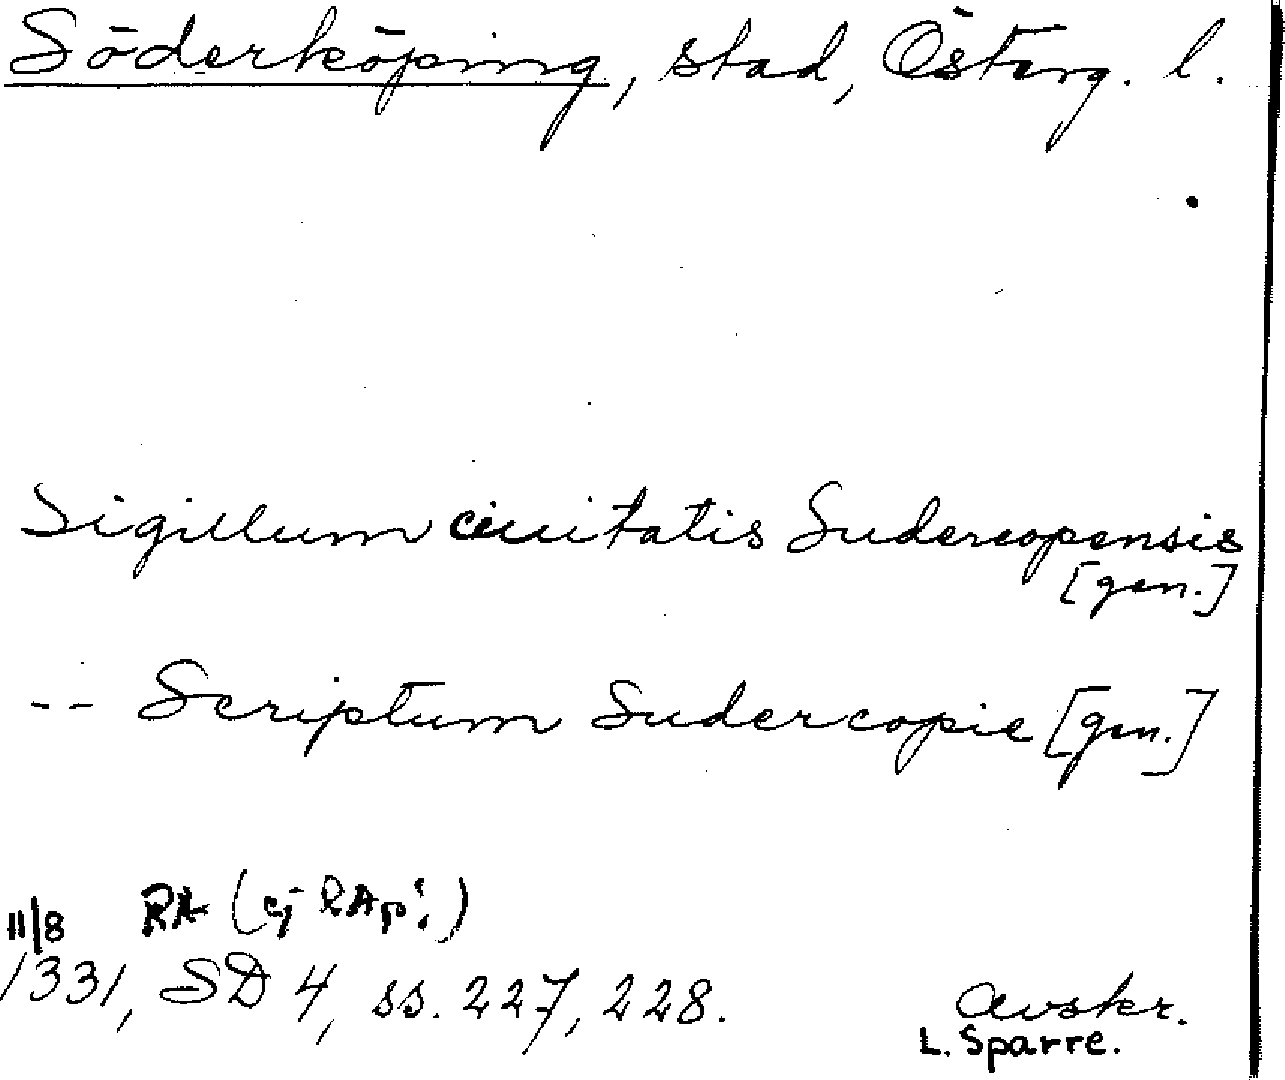 Söderköping, stad, Österg. l.
Sigillum ciuitatis Sudercopensis
[gen.]
-- Scriptum Sudercopie [gen.]
11/8 RA (ej RAp!)
1331, SD 4, ss. 227, 228. Avskr.
L. Sparre.